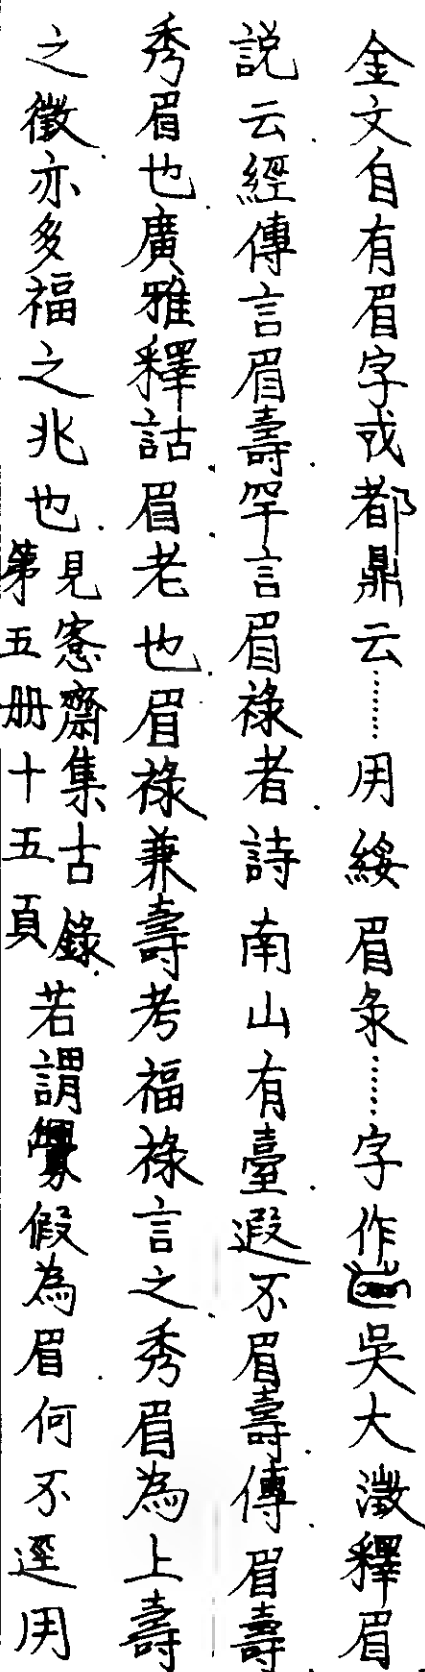 金文自有眉字或都鼎云……用綏眉彔……字作吳大澂釋眉
説云經傳言眉壽罕言眉祿者詩南山有臺遐不眉壽傳眉壽
秀眉也廣雅釋詁眉老也眉祿兼壽考福祿言之秀眉為上壽
之徵亦多福之兆也見愙齋集古錄第五册十五頁若謂假為眉何不逕用